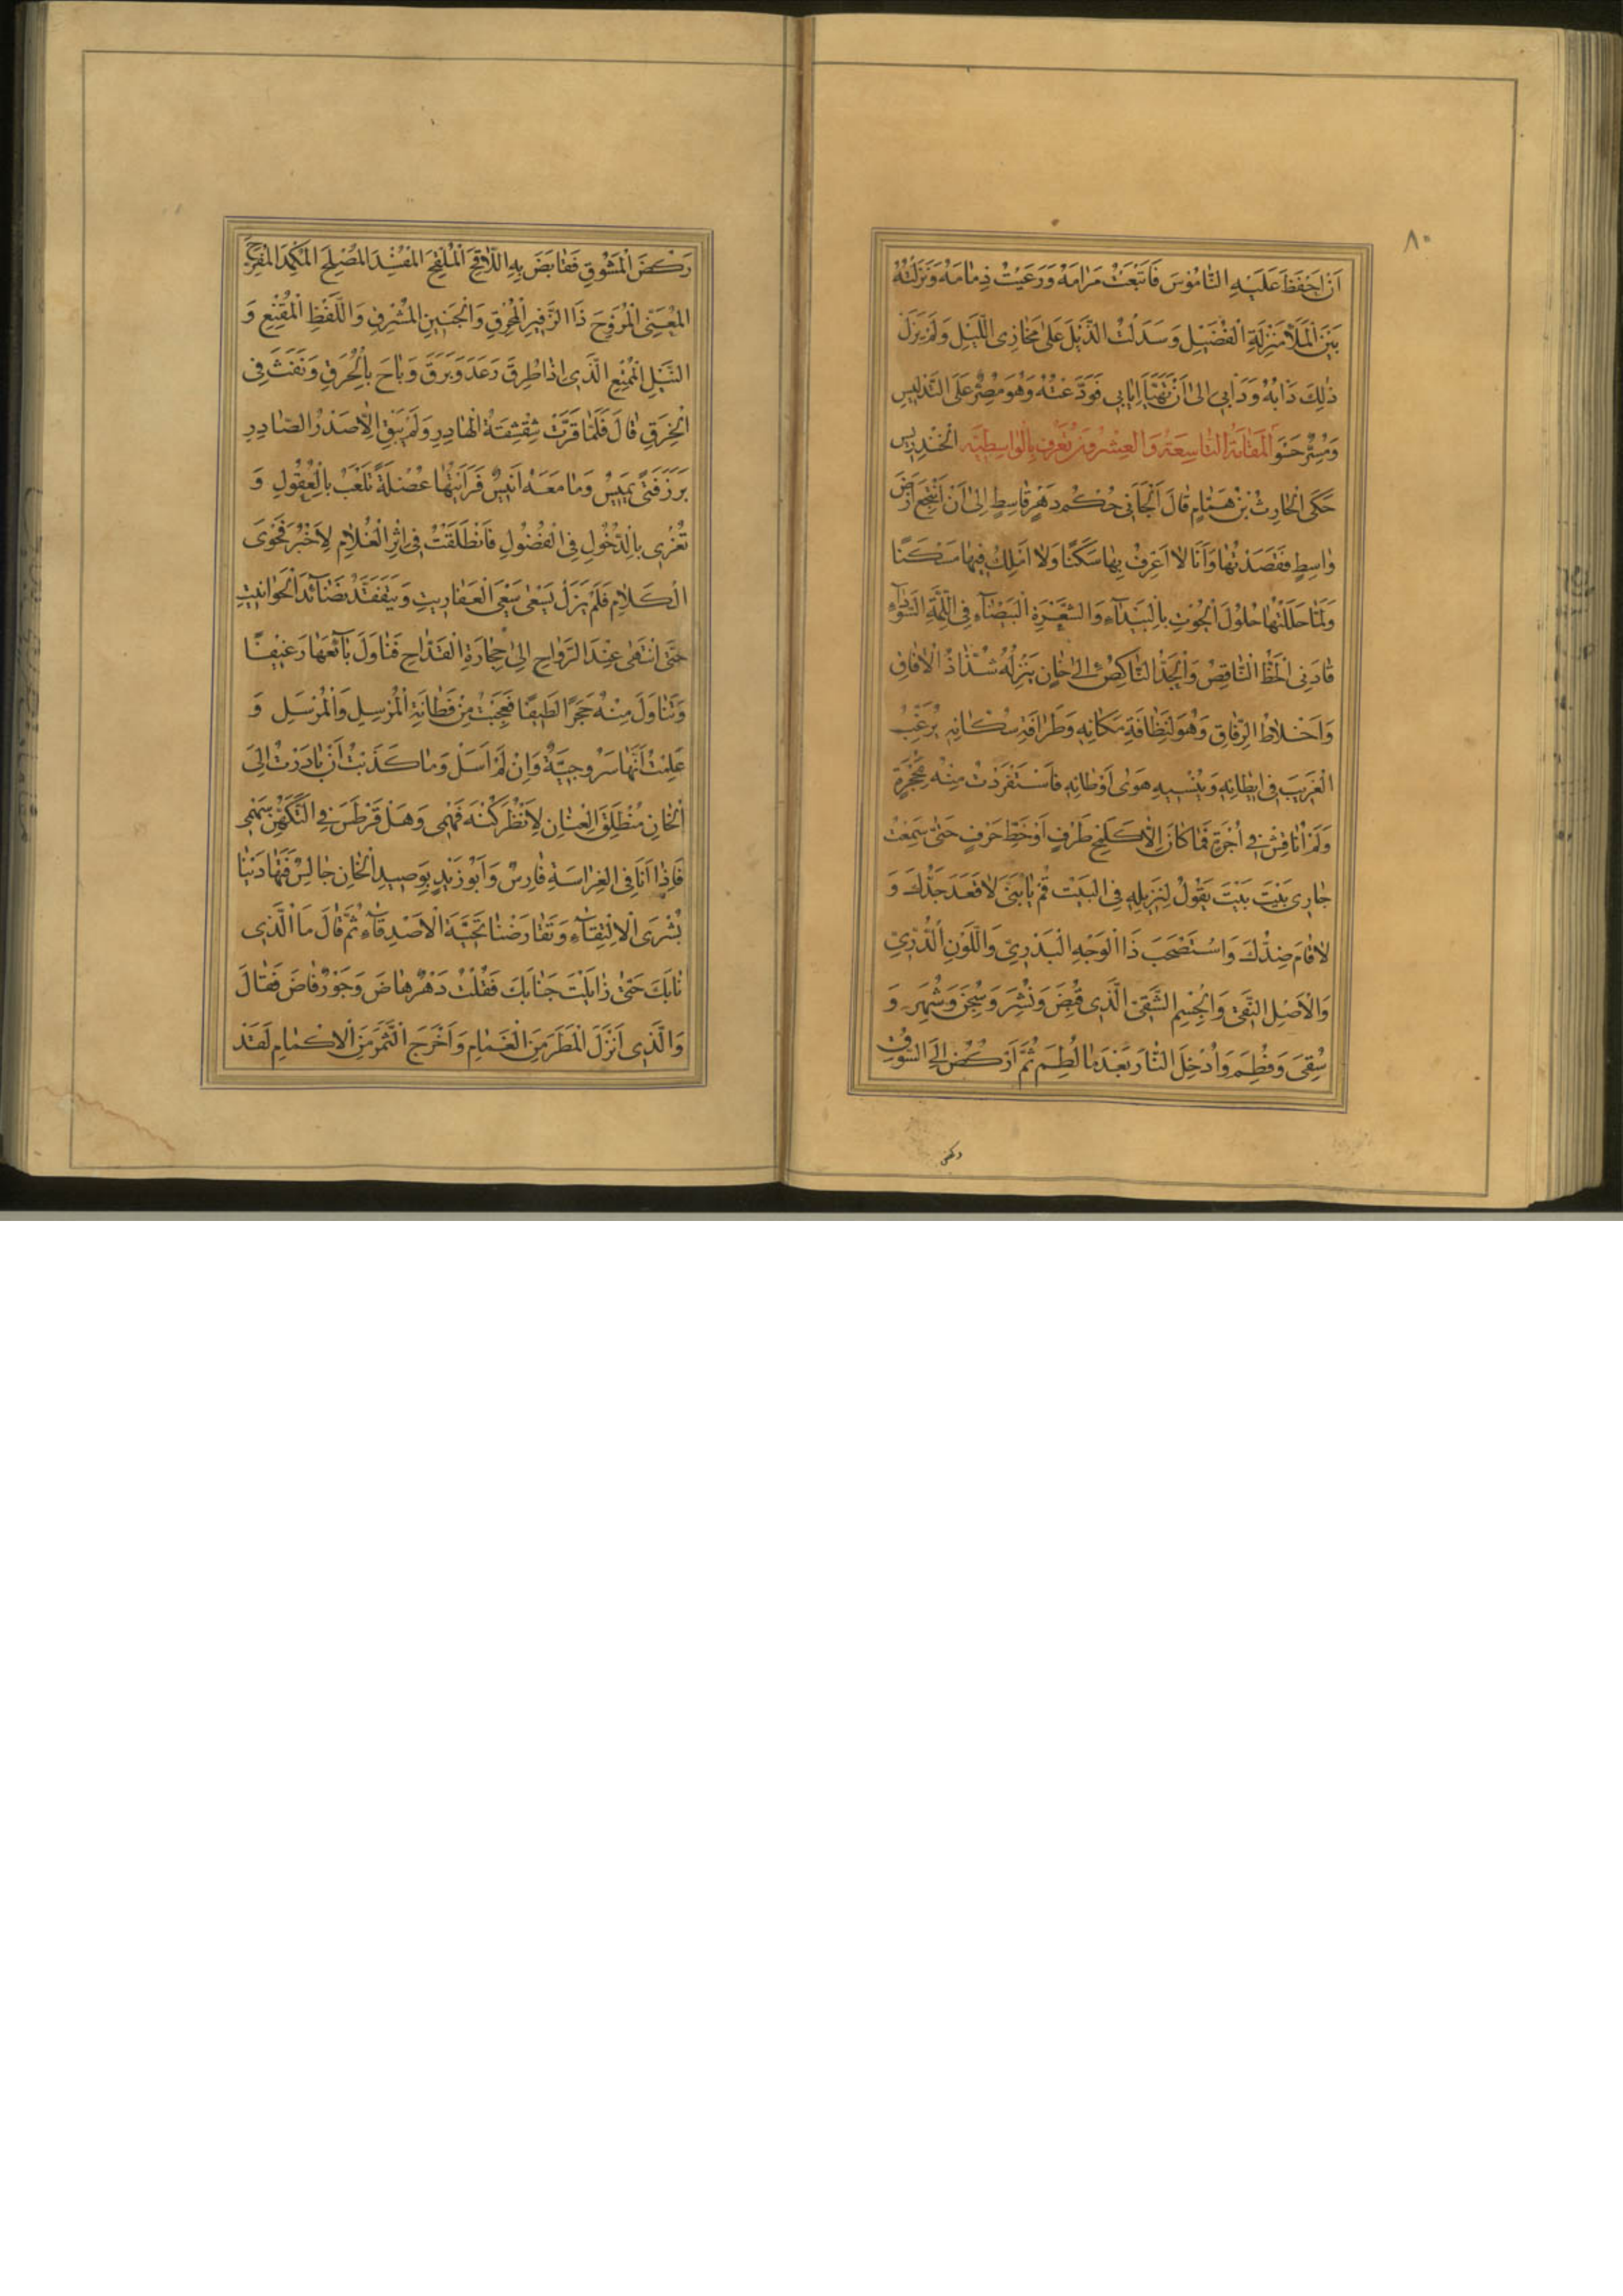 ٨٠
اَنْ اَحْفَظَ عَلَيْهِ النَّامُوسَ فَاتَّبَعْتُ مَرَامَهُ وَرَعَيْتُ ذِمَامَهُ وَنَزَّلْتُهُ
بَيْنَ الْمَلَأِ مَنْزِلَةَ الْفُضَيْلِ وَسَدَلْتُ الذَّيْلَ عَلَى مَخَازِي اللَّيْلِ وَلَمْ يَزَلْ
ذٰلِكَ دَابُهُ وَدَابِي اِلَى اَنْ تَهَيَّاَ اِيَابِي فَوَدَّعْتُهُ وَهُوَ مُصِرٌّ عَلَى التَّدْلِيسِ
وَمُسِرٌّ حَسْوَ الْمَقَامَةُ التَّاسِعَةُ وَالْعِشْرُونَ تُعْرَفُ بِالْوَاسِطِيَّةِ الْخَنْدَرِيسِ
حَكَى الْحَارِثُ بْنُ هَمَّامٍ قَالَ اَلْجَاَنِي حُكْمُ دَهْرٍ قَاسِطٍ اِلَى اَنْ اَنْتَجِعَ اَرْضَ
وَاسِطٍ فَقَصَدْتُهَا وَاَنَا لَا اَعْرِفُ بِهَا سَكَنًا وَلَا اَمْلِكُ فِيهَا مَسْكَنًا
وَلَمَّا حَلَلْتُهَا حُلُولَ الْحُوتِ بِالْبَيْدَاءِ وَالشَّعْرَةِ الْبَيْضَاءِ فِي اللِّمَّةِ السَّوْدَاءِ
قَادَنِي الْحَظُّ النَّاقِصُ وَالْجَدُّ النَّاكِصُ اِلَى خَانٍ يَنْزِلُهُ شُذَّاذُ الْآفَاقِ
وَاَخْلَاطُ الرِّفَاقِ وَهُوَ لِنَظَافَةِ مَكَانِهِ وَظَرَافَةِ سُكَّانِهِ يُرَغِّبُ
الْغَرِيبَ فِي اِيطَانِهِ وَيُنْسِيهِ هَوَى اَوْطَانِهِ فَاسْتَفْرَدْتُ مِنْهُ بِحُجْرَةٍ
وَلَمْ اُنَاقِشْ فِي اُجْرَةٍ فَمَا كَانَ اِلَّا كَلَمْحِ طَرْفٍ اَوْ خَطِّ حَرْفٍ حَتَّى سَمِعْتُ
جَارِي بَيْتَ بَيْتَ يَقُولُ لِنَزِيلِهِ فِي الْبَيْتِ قُمْ يَا بُنَيَّ لَا قَعَدَ جَدُّكَ وَ
لَا قَامَ ضِدُّكَ وَاسْتَصْحِبْ ذَا الْوَجْهِ الْبَدْرِيِّ وَاللَّوْنِ الدُّرِّيِّ
وَالْاَصْلِ النَّقِيِّ وَالْجِسْمِ الشَّقِيِّ الَّذِي قُبِضَ وَنُشِرَ وَسُجِنَ وَشُهِرَ وَ
سُقِيَ وَفُطِمَ وَاُدْخِلَ النَّارَ بَعْدَ مَا لُطِمَ ثُمَّ ارْكُضْ اِلَى السُّوقِ
ركض
رَكْضَ الْمَشُوقِ فَقَابِضْ بِهِ اللَّاقِحَ الْمُلْقِحَ الْمُفْسِدَ الْمُصْلِحَ الْمُكْمِدَ الْمُفَرِّحَ
الْمُعَنِّيَ الْمُرَوِّحَ ذَا الزَّفِيرِ الْمُحْرِقِ وَالْجَنِينِ الْمُشْرِقِ وَاللَّفْظِ الْمُقْنِعِ وَ
النَّيْلِ الْمُمْتِعِ الَّذِي اِذَا طُرِقَ رَعَدَ وَبَرَقَ وَبَاحَ بِالْحُرَقِ وَنَفَثَ فِي
الْخِرَقِ قَالَ فَلَمَّا قَرَّتْ شِقْشِقَةُ الْهَادِرِ وَلَمْ يَبْقَ اِلَّا صَدَرُ الصَّادِرِ
بَرَزَ فَتًى يَمِيسُ وَمَا مَعَهُ اَنِيسٌ فَرَاَيْتُهَا عُضْلَةً تَلْعَبُ بِالْعُقُولِ وَ
تُغْرِي بِالدُّخُولِ فِي الْفُضُولِ فَانْطَلَقْتُ فِي اِثْرِ الْغُلَامِ لِاَخْبُرَ فَحْوَى
الْكَلَامِ فَلَمْ يَزَلْ يَسْعَى سَعْيَ الْعَفَارِيتِ وَيَتَفَقَّدُ نَضَائِدَ الْحَوَانِيتِ
حَتَّى انْتَهَى عِنْدَ الرَّوَاحِ اِلَى حِجَارَةِ الْقَدَّاحِ فَنَاوَلَ بَائِعَهَا رَغِيفًا
وَتَنَاوَلَ مِنْهُ حَجَرًا لَطِيفًا فَعَجِبْتُ مِنْ فَطَانَةِ الْمُرْسِلِ وَالْمُرْسَلِ وَ
عَلِمْتُ اَنَّهَا سَرُوجِيَّةٌ وَاِنْ لَمْ اَسَلْ وَمَا كَذَّبْتُ اَنْ بَادَرْتُ اِلَى
الْخَانِ مُنْطَلِقَ الْعِنَانِ لِاَنْظُرَ كُنْهَ فَهْمِي وَهَلْ قَرْطَسَ فِي التَّكَهُّنِ سَهْمِي
فَاِذَا اَنَا فِي الْفِرَاسَةِ فَارِسٌ وَاَبُو زَيْدٍ بِوَصِيدِ الْخَانِ جَالِسٌ فَتَهَادَيْنَا
بُشْرَى الْاِلْتِقَاءِ وَتَقَارَضْنَا تَحِيَّةَ الْاَصْدِقَاءِ ثُمَّ قَالَ مَا الَّذِي
نَابَكَ حَتَّى زَايَلْتَ جَنَابَكَ فَقُلْتُ دَهْرٌ هَاضَ وَجَوْرٌ فَاضَ فَقَالَ
وَالَّذِي اَنْزَلَ الْمَطَرَ مِنَ الْغَمَامِ وَاَخْرَجَ الثَّمَرَ مِنَ الْاَكْمَامِ لَقَدْ